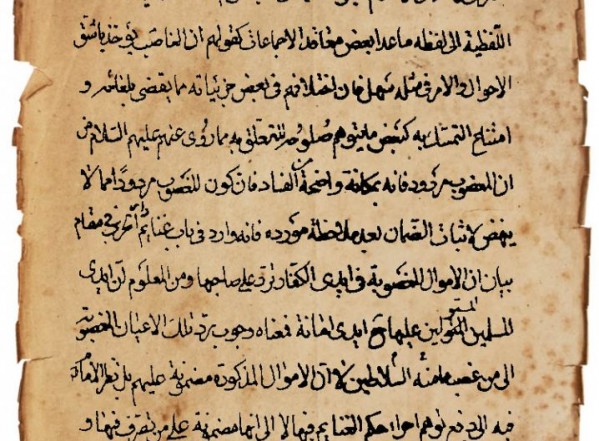 اللفظية الى لفظه ماعدا بعض معاقد الاجماعات كقولهم ان الغاصب يؤخذ باشق
الاحوال والامر فى مثله سهل فان اختلافهم فى بعض جزئياته مما يقضى بلغائه و
امتناع التمسك به كبعض ما يتوهم صلوحه للتعلق به مما روى عنهم عليهم السلام من
ان المغصوب مردود فانه بمكانة واضحة الفساد فان كون المغصوب مردودا مما لا
ينهض لاثبات الضمان بعد ملاحظة مورده فانه وارد فى باب غنايم فى مقام
بيان ان الاموال المغصوبة فى ايدى الكفار ترد على صاحبها ومن المعلوم ان ايدى
المسلمين عليها ايدى امانة فمعناه وجوب رد تلك الاعيان المغصوبة
الى من غصبها منه السلاطين لا ان الاموال المذكورة مضمونة عليهم بل نظر الامام
فيه الى دفع توهم اجراء حكم الغنايم فيها لا الى انها مضمونة على من تصرف فيها و